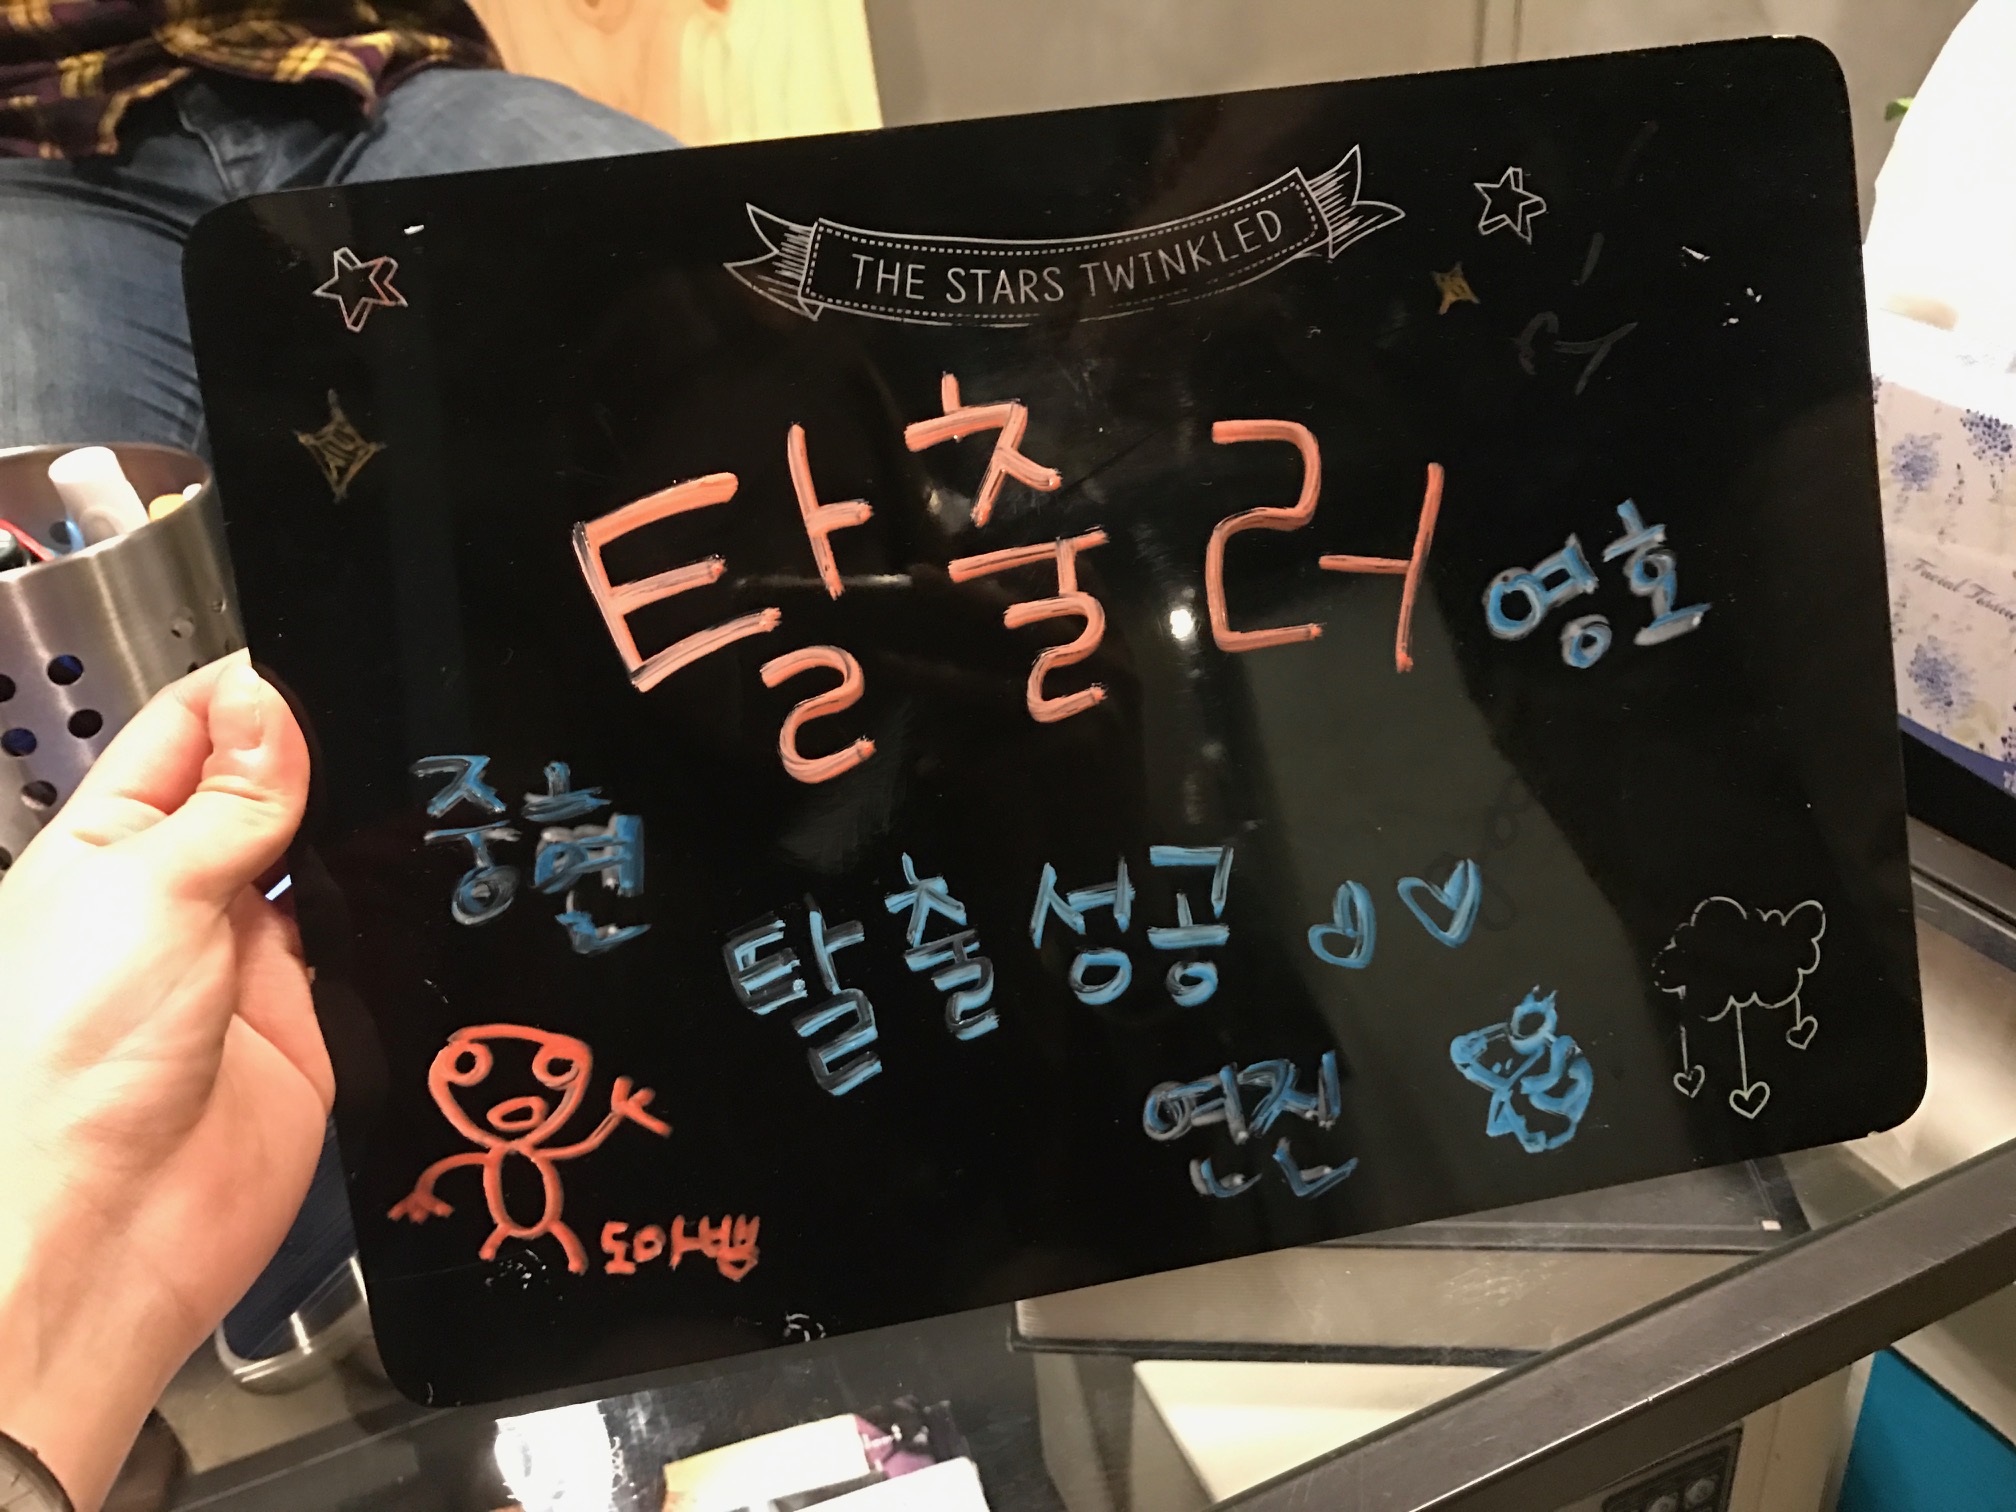 THE STARS TWINKLED
탈출러
영호
중현
탈출성공♡♡
연진
Facial Tissue